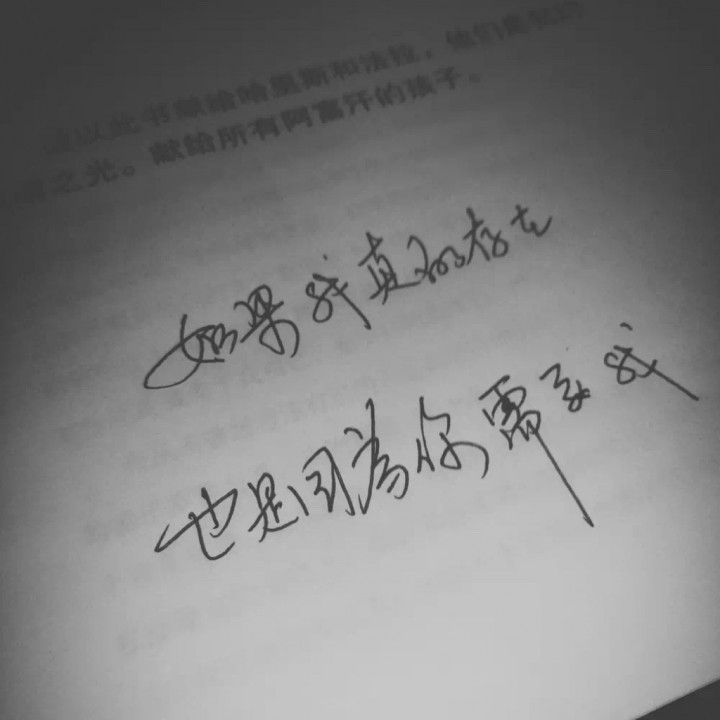 谨以此书献给哈里斯和法拉，他们是我的
眼之光。献给所有阿富汗的孩子。
如果我真的存在
也是因為你需要我